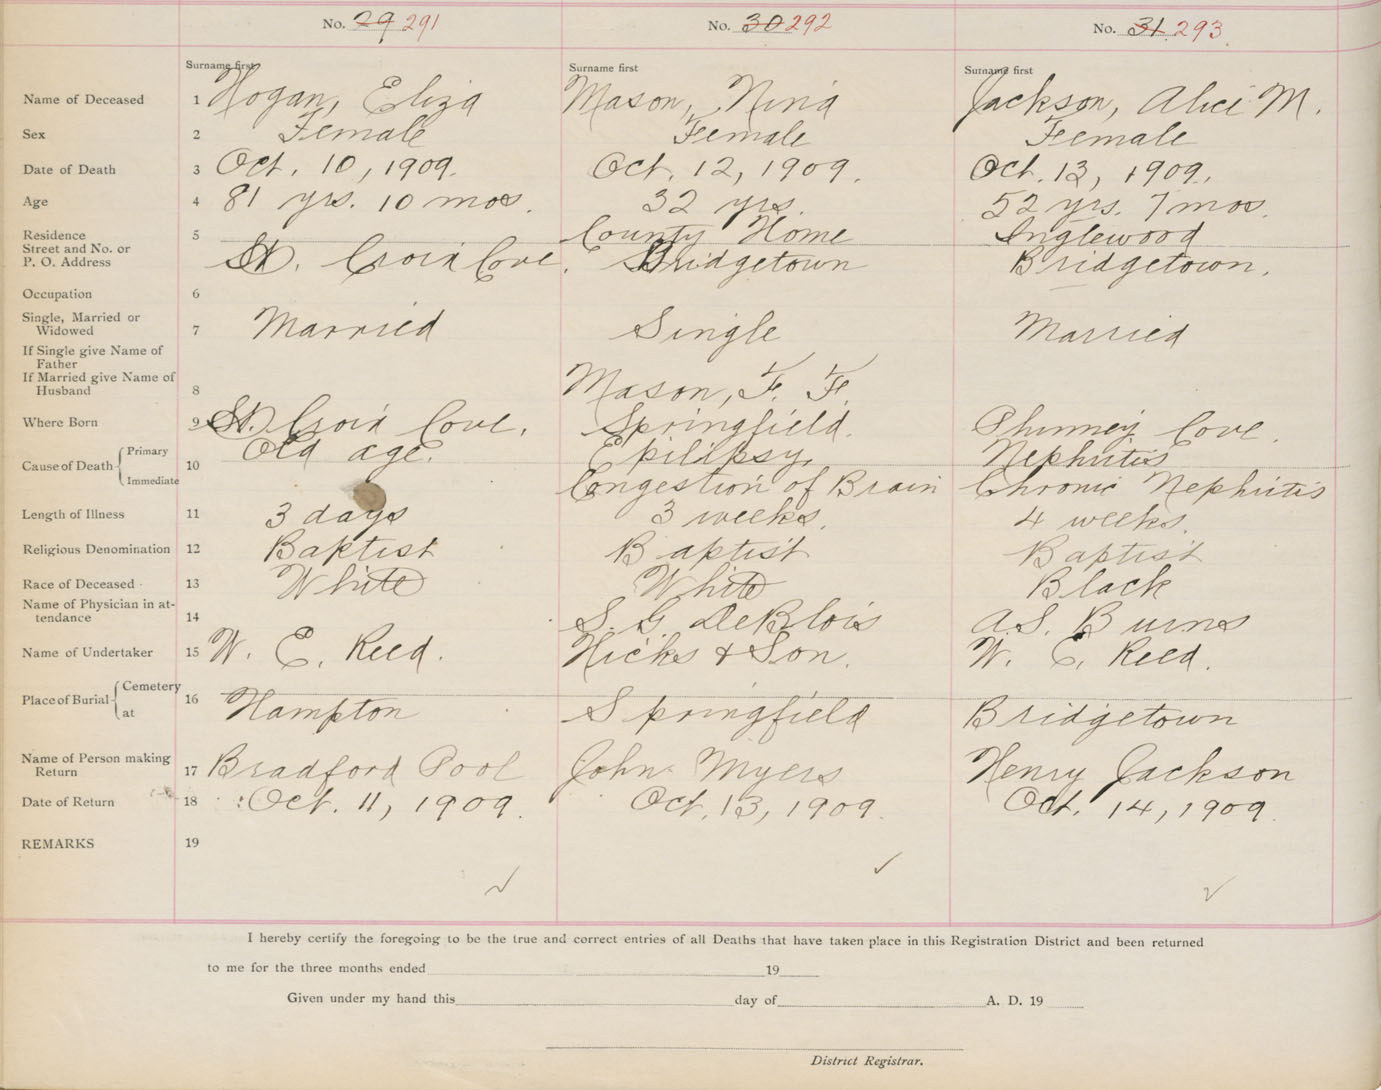 No. 29 291 No. 30 292 No. 31. 293
Surname first Surname first Surname first
Name of Deceased 1 Hogan, Eliza Mason, Nina Jackson, Alice M.
Sex 2 Female Female Female
Date of Death 3 Oct. 10, 1909. Oct. 12, 1909. Oct. 13, 1909.
Age 4 81 yrs. 10 mos. 32 yrs. 52 yrs. 7 mos.
Residence 5 County Home Inglewood
Street and No. or
P. O. Address St. Croix Cove. Bridgetown Bridgetown.
Occupation 6
Single, Married or
Widowed 7 Married Single Married
If Single give Name of
Father
If Married give Name of
Husband 8 Mason, F. F.
Where Born 9 St. Croix Cove. Springfield. Phinney Cove.
Cause of Death Primary 10 Old age. Epilipsy. Nephritis
Immediate Congestion of Brain Chronic Nephritis
Length of Illness 11 3 days 3 weeks. 4 weeks.
Religious Denomination 12 Baptist Baptist Baptist
Race of Deceased 13 White White Black
Name of Physician in at-
tendance 14 S. G. DeBlois A.S. Burns
Name of Undertaker 15 W. E. Reed. Hicks & Son. W. E. Reed.
Place of Burial Cemetery 16
at Hampton Springfield Bridgetown
Name of Person making
Return 17 Bradford Pool John Myers Henry Jackson
Date of Return 18 Oct. 11, 1909. Oct. 13, 1909. Oct. 14, 1909.
REMARKS 19
I hereby certify the foregoing to be the true and correct entries of all Deaths that have taken place in this Registration District and been returned
to me for the three months ended 19
Given under my hand this day of A. D. 19
District Registrar.